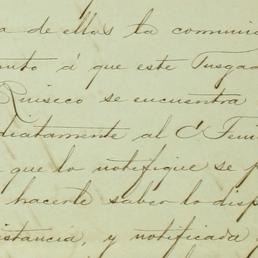 a de ellas la comunic
anto á que este Tusgad
Ruiseco se encuentra
diatamente al C. Teni
que lo notifique se p
hacerle saber lo disp
istancia, y notificada